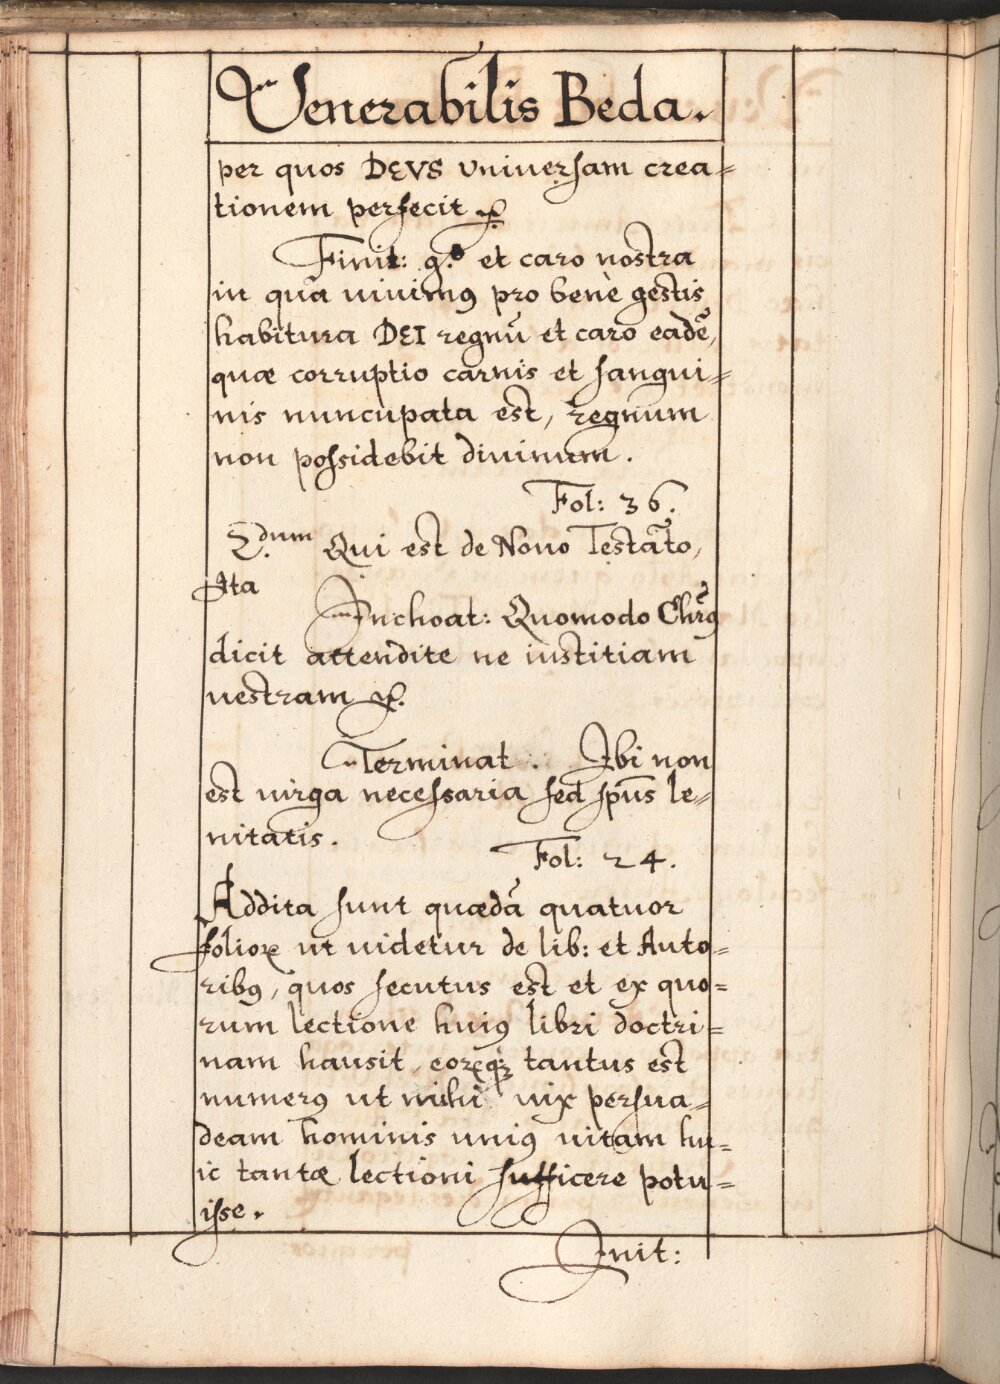 Venerabilis Beda.
per quos DEVS vniuersam crea=
tionem perfecit &c.
Finit: g.º et caro nostra
in quā uiuimꝰ pro benè gestis
habitura DEI regnū et caro eadē,
quæ corruptio carnis et sangui=
nis nuncupata est, regnum
non possidebit diuinum.
Fol: 36.
2.dum Qui est de Nouo Testāto,
Ita
Inchoat: Quomodo Chrūs
dicit attendite ne iustitiam
uestram &c.
Terminat. Ibi non
est uirga necessaria sed sp̄us le=
nitatis.
Fol: 24.
Addita sunt quædā quatuor
folioꝝ ut uidetur de lib: et Auto=
ribꝰ, quos secutus est et ex quo=
rum lectione huiꝰ libri doctri=
nam hausit, eoꝝqꝫ tantus est
numerꝰ ut mihi uix persua=
deam hominis uniꝰ uitam hu=
ic tantæ lectioni sufficere potu=
isse.
Init: